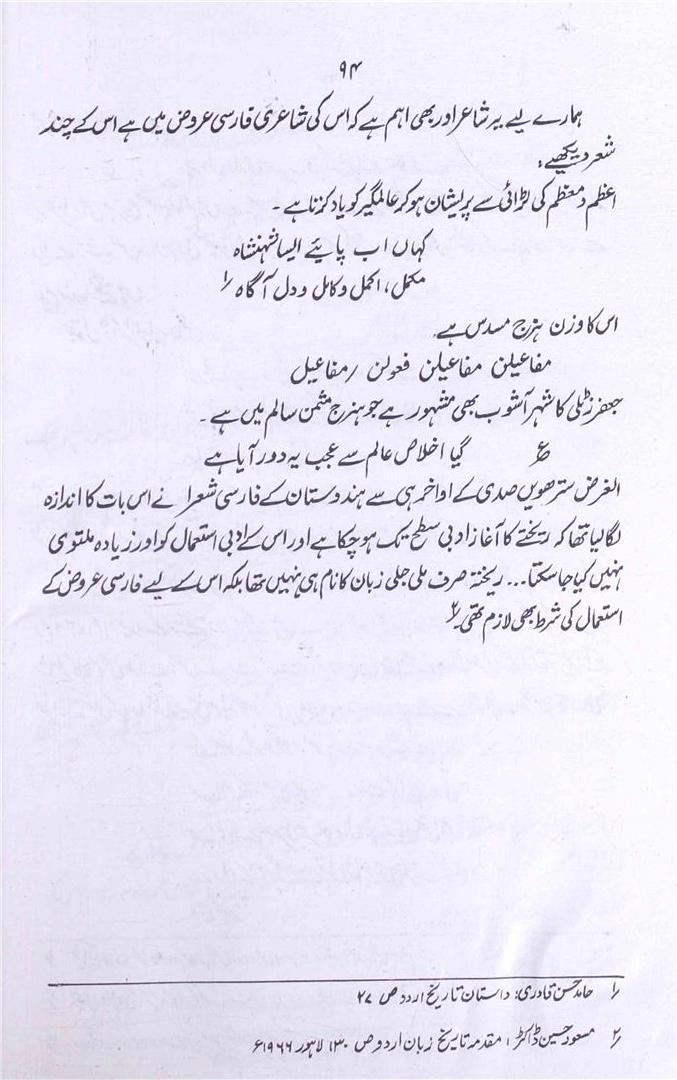 ۹۴
ہمارے لیے یہ شاعر اور بھی اہم ہے کہ اس کی شاعری فارسی عروض میں ہے اس کے چند
شعر دیکھیے:
اعظم و معظم کی لڑائی سے پریشان ہو کر عالمگیر کو یاد کرتا ہے۔
کہاں اب پائیے ایسا شہنشاہ
مکمل، اکمل و کامل و دل آگاہ ۱؎
اس کا وزن ہزج مسدس ہے
مفاعیلن مفاعیلن فعولن / مفاعیل
جعفر زٹلی کا شہر آشوب بھی مشہور ہے جو ہزج مثمن سالم میں ہے۔
ع گیا اخلاص عالم سے عجب یہ دور آیا ہے
الغرض سترھویں صدی کے اواخر ہی سے ہندوستان کے فارسی شعرا نے اس بات کا اندازہ
لگا لیا تھا کہ ریختے کا آغاز ادبی سطح تک ہو چکا ہے اور اس کے ادبی استعمال کو اور زیادہ ملتوی
نہیں کیا جا سکتا... ریختہ صرف ملی جلی زبان کا نام ہی نہیں تھا بلکہ اس کے لیے فارسی عروض کے
استعمال کی شرط بھی لازم تھی۔ ۲؎
۱؎ حامد حسن قادری: داستان تاریخ اردو ص ۲۷
۲؎ مسعود حسین ڈاکٹر: مقدمہ تاریخ زبان اردو ص ۱۳۰ لاہور ۱۹۶۶ء